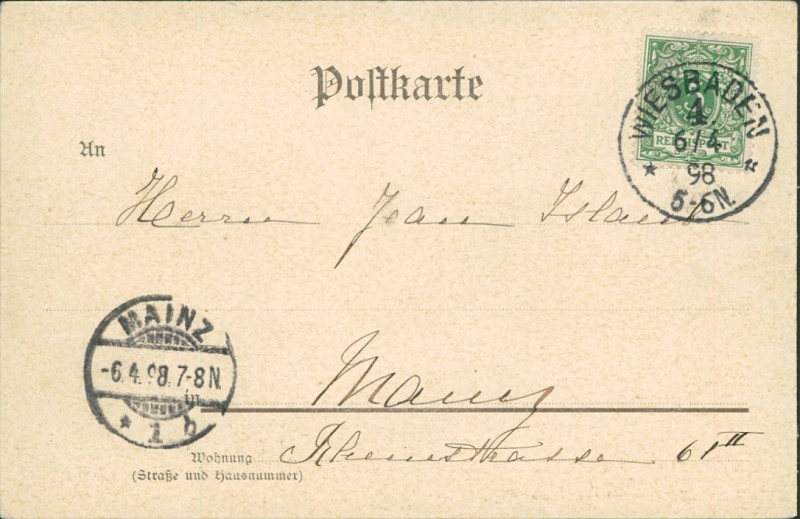 Postkarte
WIESBADEN
4
REICHSPOST
6/4
98
5-6N.
An
Herrn Jean Island
MAINZ
-6.4.98.7-8N.
1 b
in
Mainz
Wohnung
(Straße und Hausnummer)
Rheinstrasse 61 II